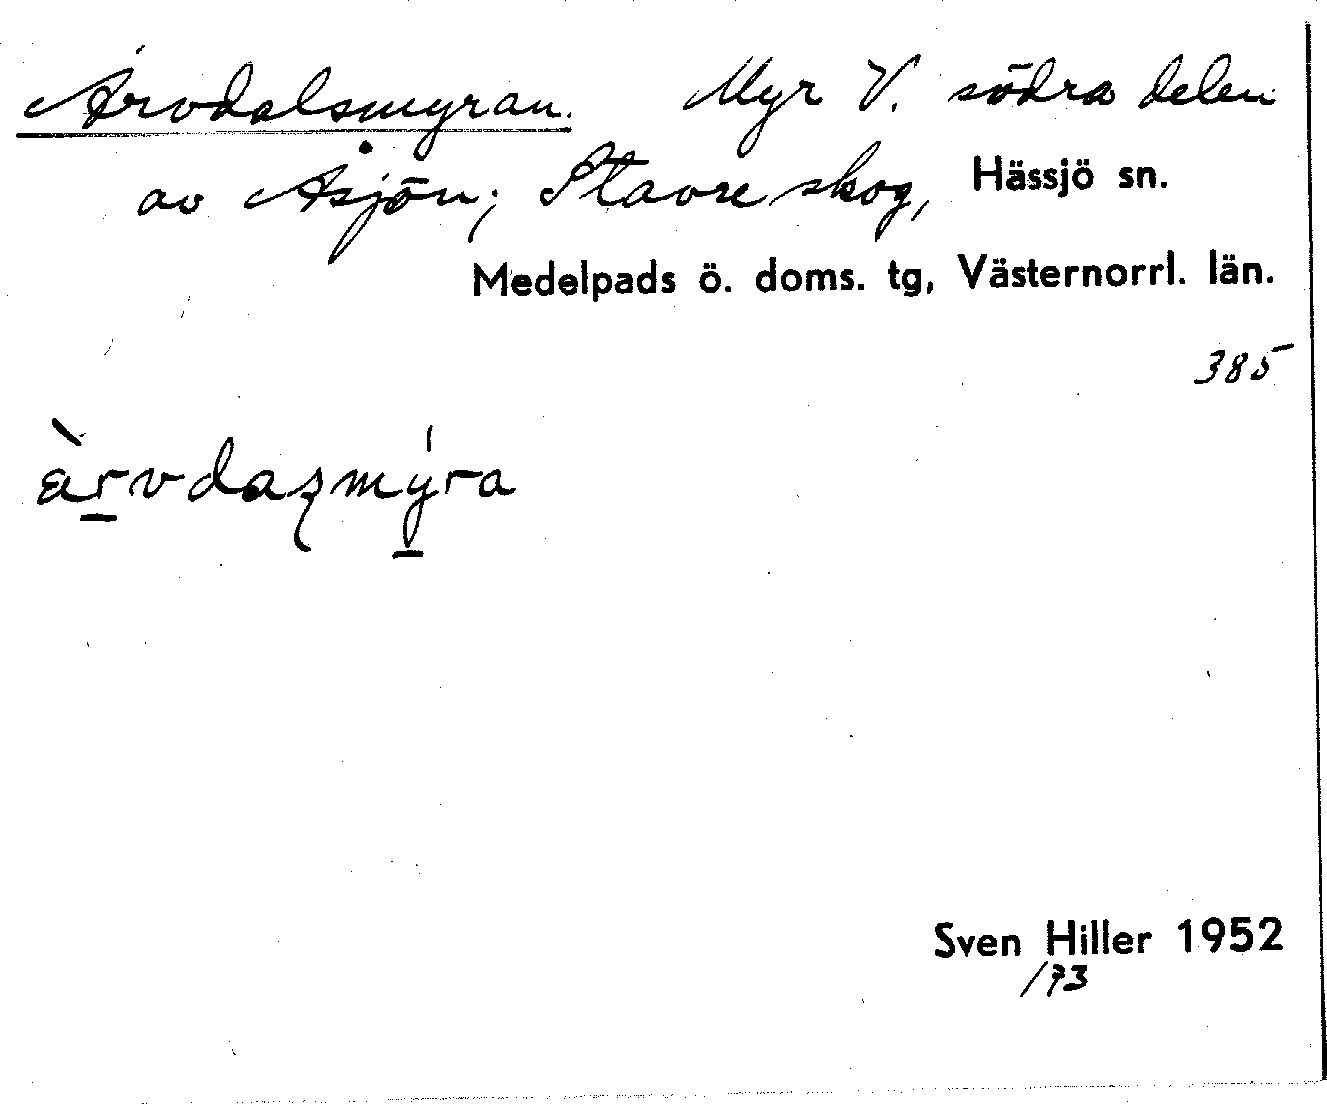 Arvdalsmyran. Myr V. södra delen
av Åsjön; Stavre skog, Hässjö sn.
Medelpads ö. doms. tg, Västernorrl. län.
385
Sven Hiller 1952
/73